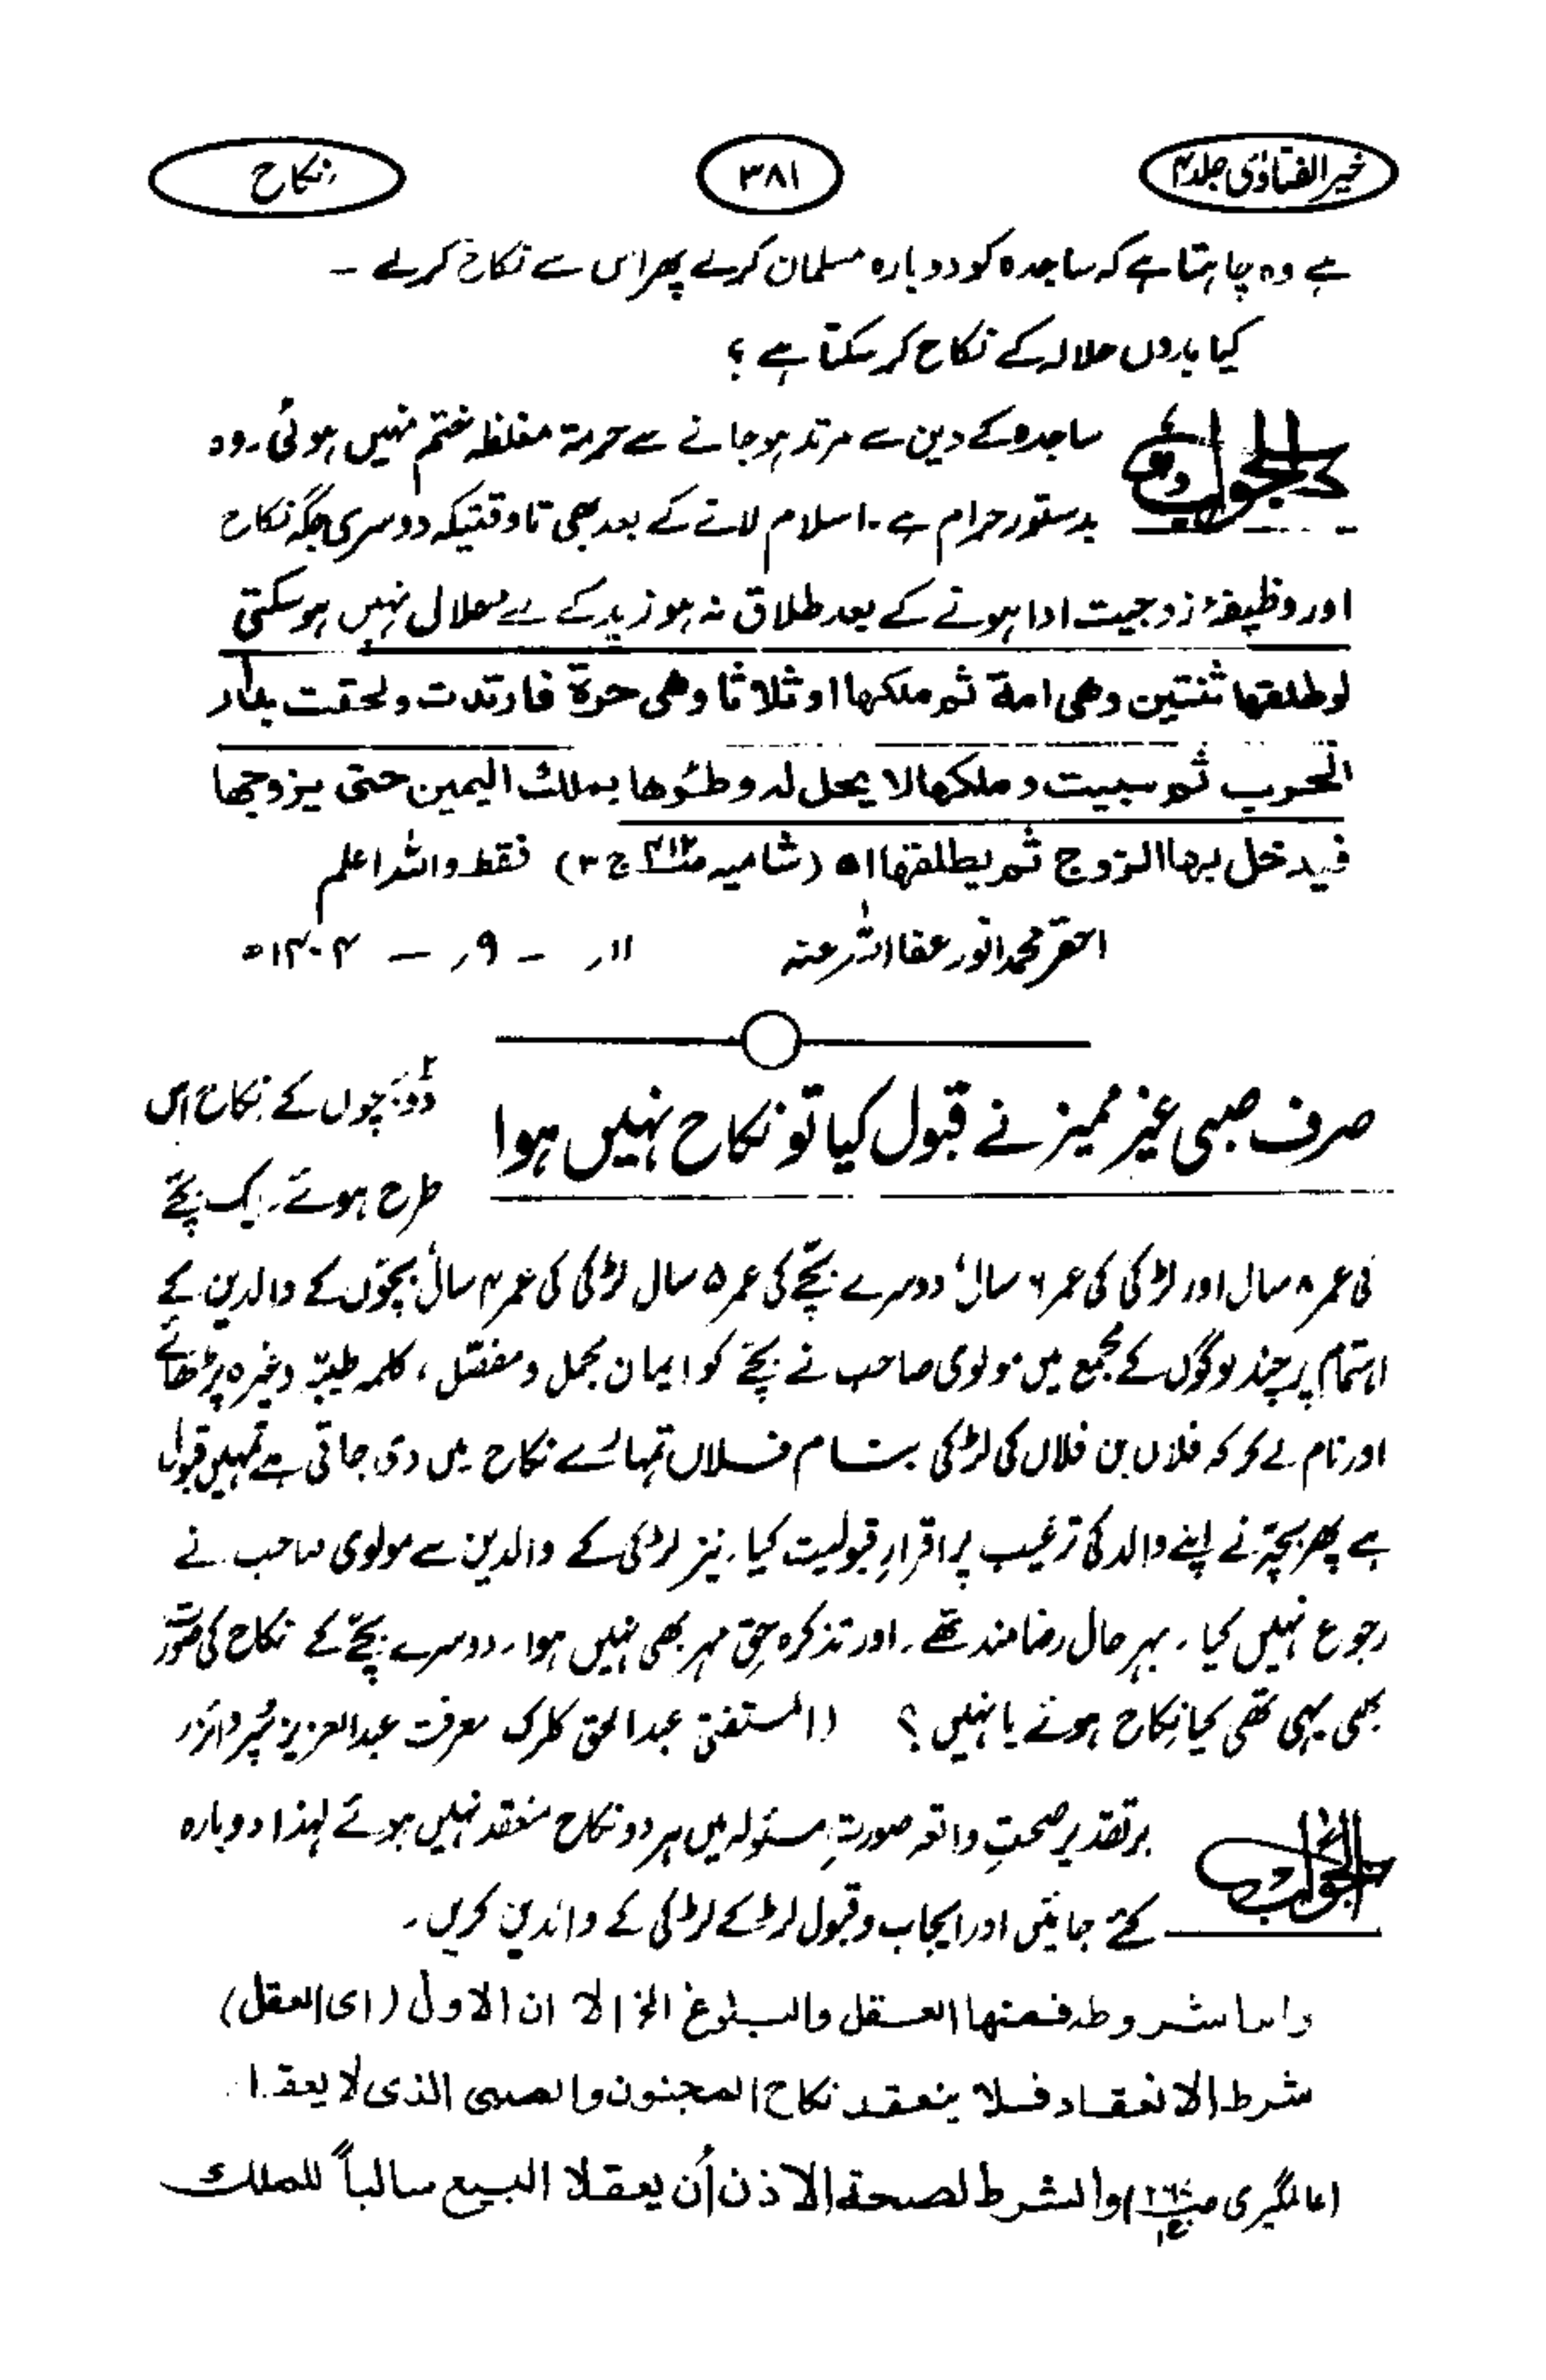 خیر الفتاوٰی جلد ۴
۳۸۱
نکاح
ہے وہ چاہتا ہے کہ ساجدہ کو دوبارہ مسلمان کرلے پھر اس سے نکاح کرلے ۔
کیا بدوں حلالہ کے نکاح کر سکتا ہے ؟
الجواب ساجدہ کے دین سے مرتد ہو جانے سے حرمۃ مغلظہ ختم نہیں ہوئی۔ وہ
بدستور حرام ہے ۔ اسلام لانے کے بعد بھی تاوقتیکہ دوسری جگہ نکاح
اور وظیفۂ زوجیت ادا ہونے کے بعد طلاق نہ ہو زید کے لے حلال نہیں ہو سکتی
لوطلقها ثنتین وهی امة ثم ملکها او ثلاثا وهی حرة فارتدت ولحقت بدار
الحرب ثم سبیت وملکها لا یحل له وطئوها بملك الیمین حتی یزوجها
فیدخل بها الزوج ثم یطلقها اه (شامیه ج ۳) فقط واللہ اعلم
احقر محمد انور عفا اللہ عنہ ۱۱ر ۔ ۹ر ۔ ۱۴۰۴ھ
صرف صبی غیر ممیز نے قبول کیا تو نکاح نہیں ہوا
دو بچوں کے نکاح اس
طرح ہوئے۔ ایک بچے
کی عمر ۸ سال اور لڑکی کی عمر ۶ سال، دوسرے بچّے کی عمر ۵ سال لڑکی کی عمر ۴ سال بچّوں کے والدین کے
اہتمام پر چند لوگوں کے مجمع میں مولوی صاحب نے بچّے کو ایمان مجمل و مفصّل ، کلمہ طیّبہ وغیرہ پڑھائے
اور نام لے کر کہ فلاں بن فلاں کی لڑکی بنام فلاں تمہارے نکاح میں دی جاتی ہے تمہیں قبول
ہے پھر بچّہ نے اپنے والد کی ترغیب پر اقرارِ قبولیت کیا۔ نیز لڑکی کے والدین سے مولوی صاحب نے
رجوع نہیں کیا ۔ بہرحال رضامند تھے ۔ اور تذکرہ حق مہر بھی نہیں ہوا۔ دوسرے بچّے کے نکاح کی صورت
بھی یہی تھی کیا نکاح ہوئے یا نہیں ؟ (المستفتی عبدالحق کلرک معرفت عبدالعزیز
الجواب برتقدیر صحتِ واقعہ صورتِ مسئولہ میں ہر دو نکاح منعقد نہیں ہوئے لہٰذا دوبارہ
کئے جائیں اور ایجاب و قبول لڑکے لڑکی کے والدین کریں ۔
واما شروطه فمنها العقل والبلوغ الخ الا ان الاول (ای العقل)
شرط الانعقاد فلا ینعقد نکاح المجنون والصبی الذی لا یعقل
(عالمگیری ج۱) والشرط لصحة الاذن أن یعقلا البیع سالباً للملك